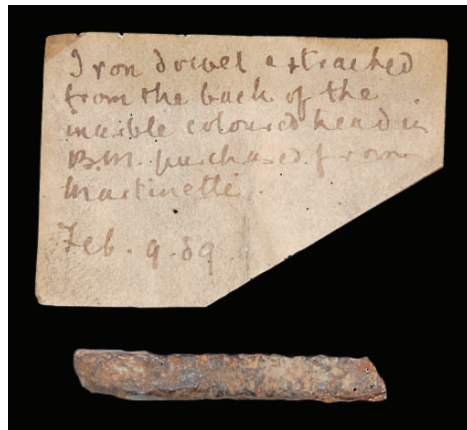 Iron dowel attached
from the back of the
marble coloured head in
B.M. purchased from
Martinetti.
Feb. 9. 89.